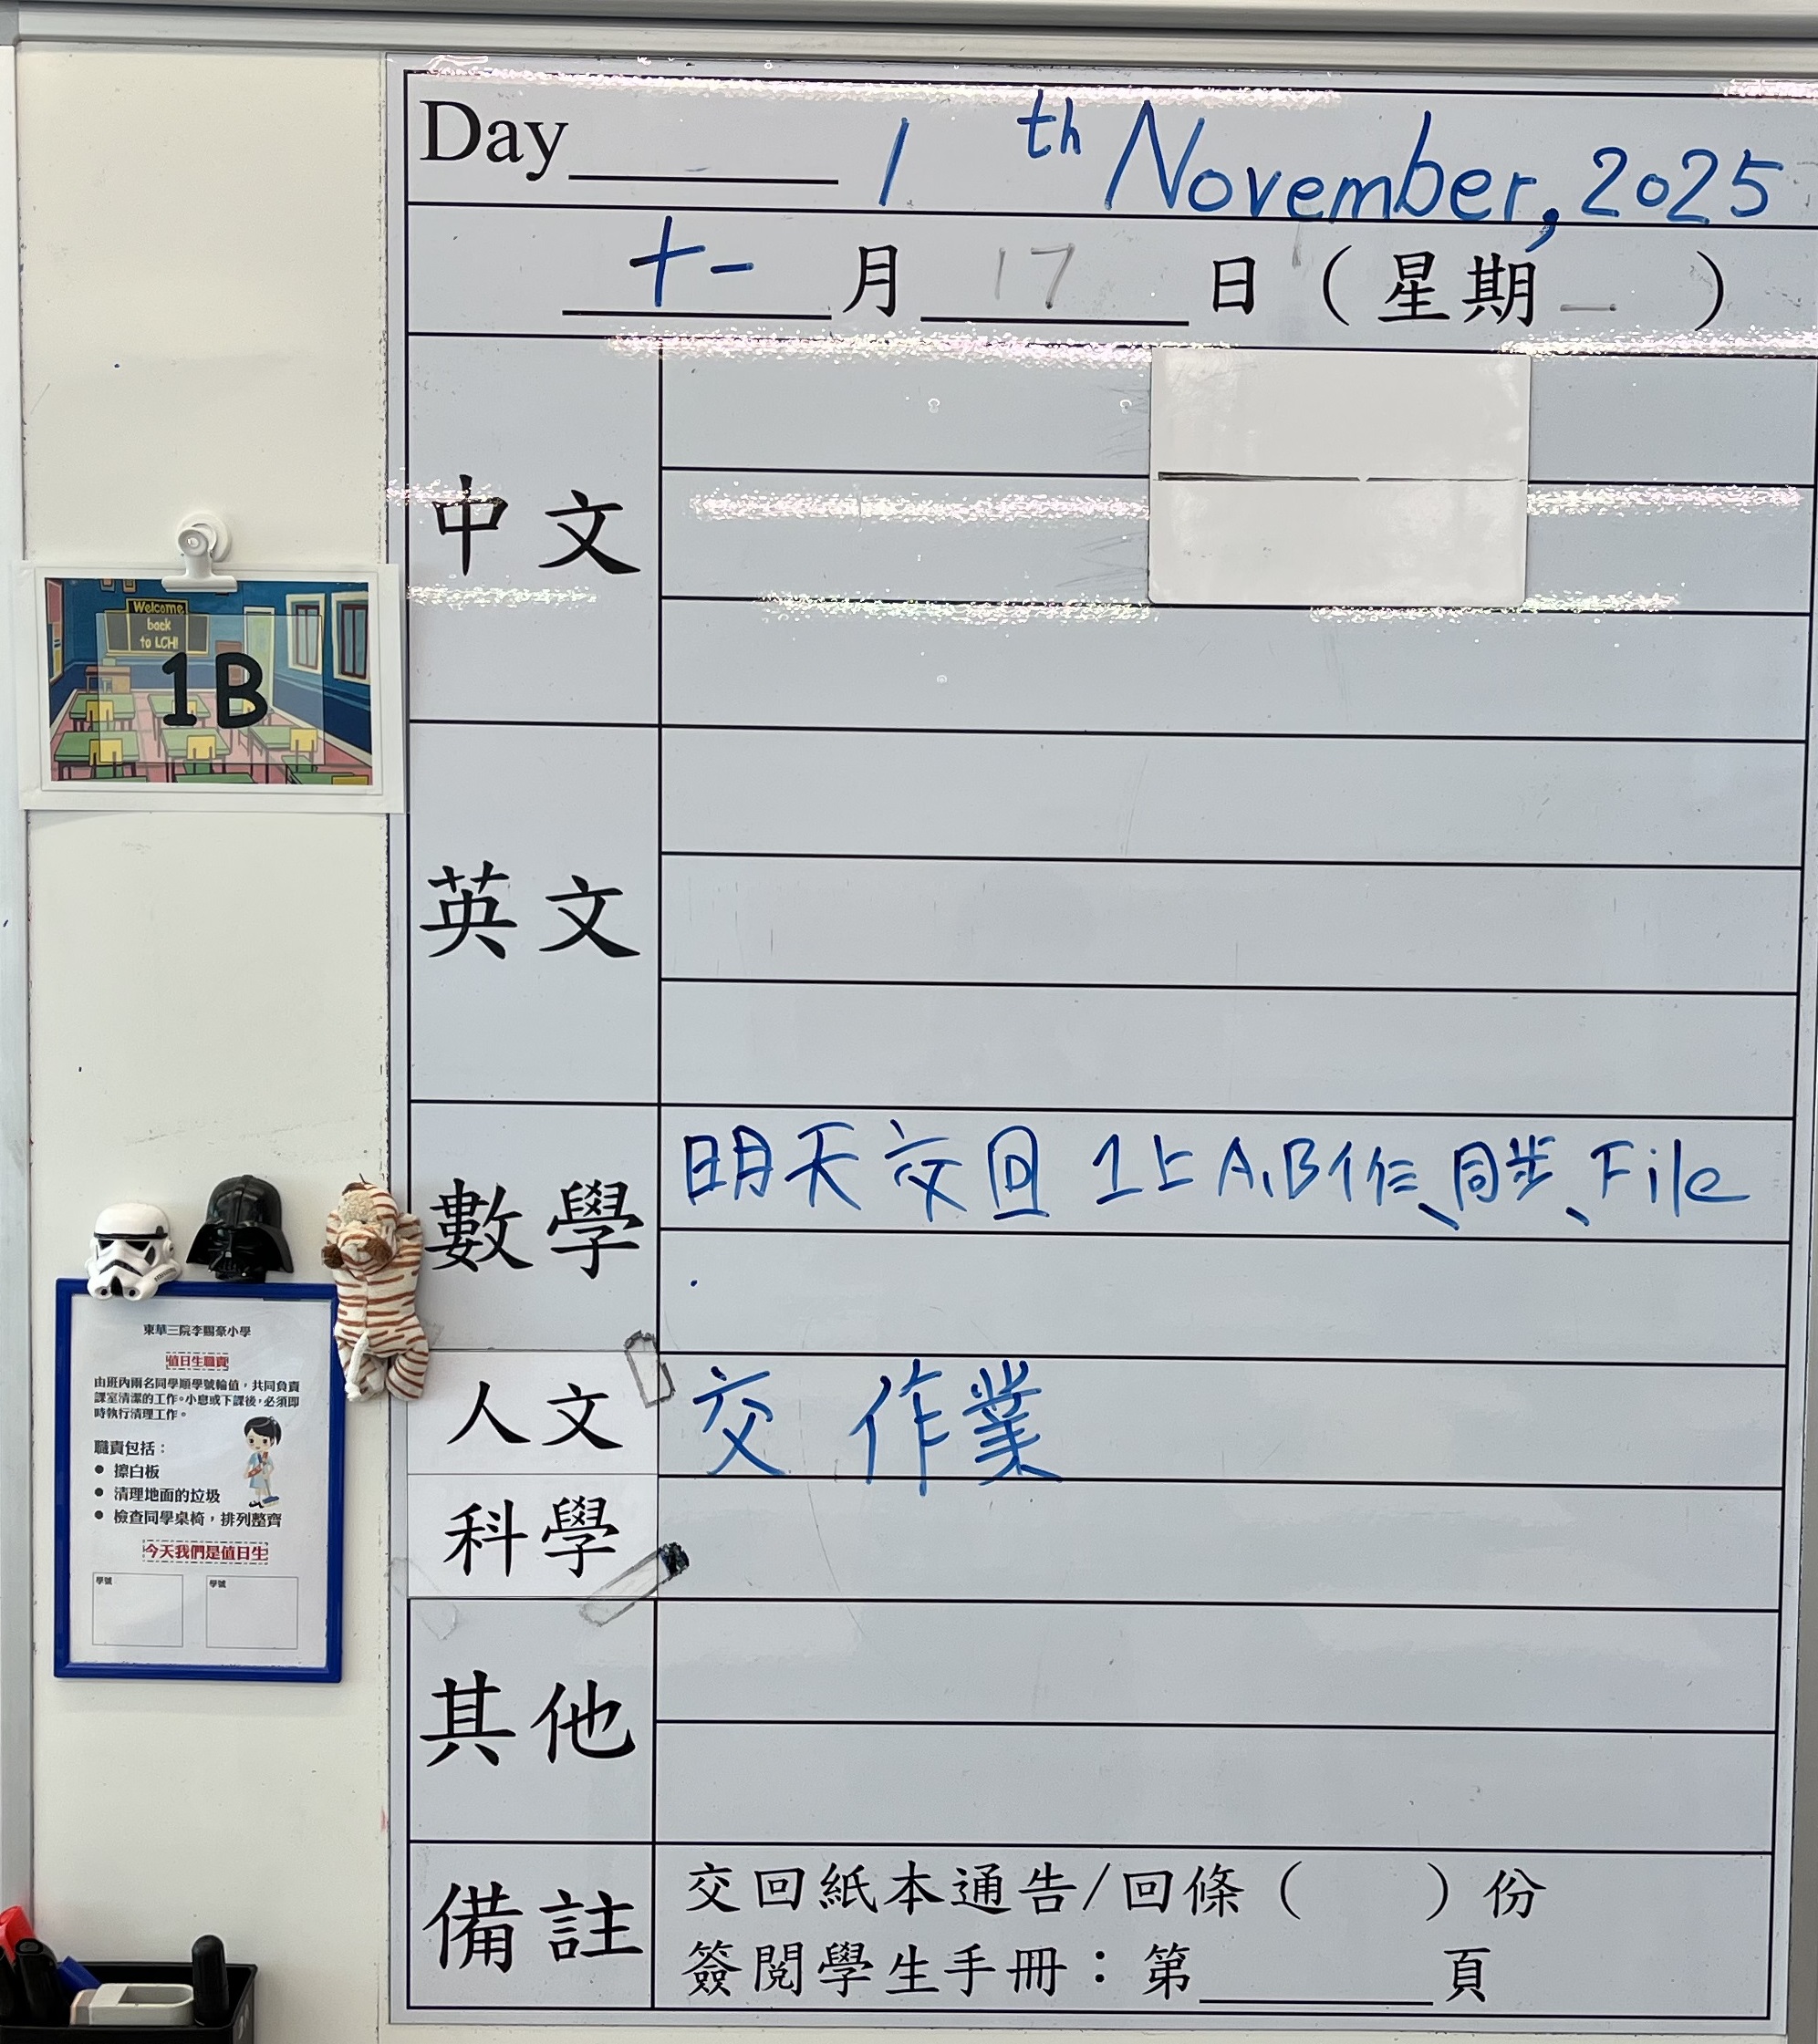 Day 1 th November, 2025
十一月 17 日（星期一）
中文
Welcome
back
to LCH!
1B
英文
數學 明天交回 1上A,B作、同步、File
人文 交 作業
科學
其他
備註
交回紙本通告/回條（ ）份
簽閱學生手冊：第 頁
東華三院李賜豪小學
值日生職責
由班內兩名同學順學號輪值，共同負責
課室清潔的工作。小息或下課後，必須即
時執行清理工作。
職責包括：
● 擦白板
● 清理地面的垃圾
● 檢查同學桌椅，排列整齊
今天我們是值日生
學號 學號